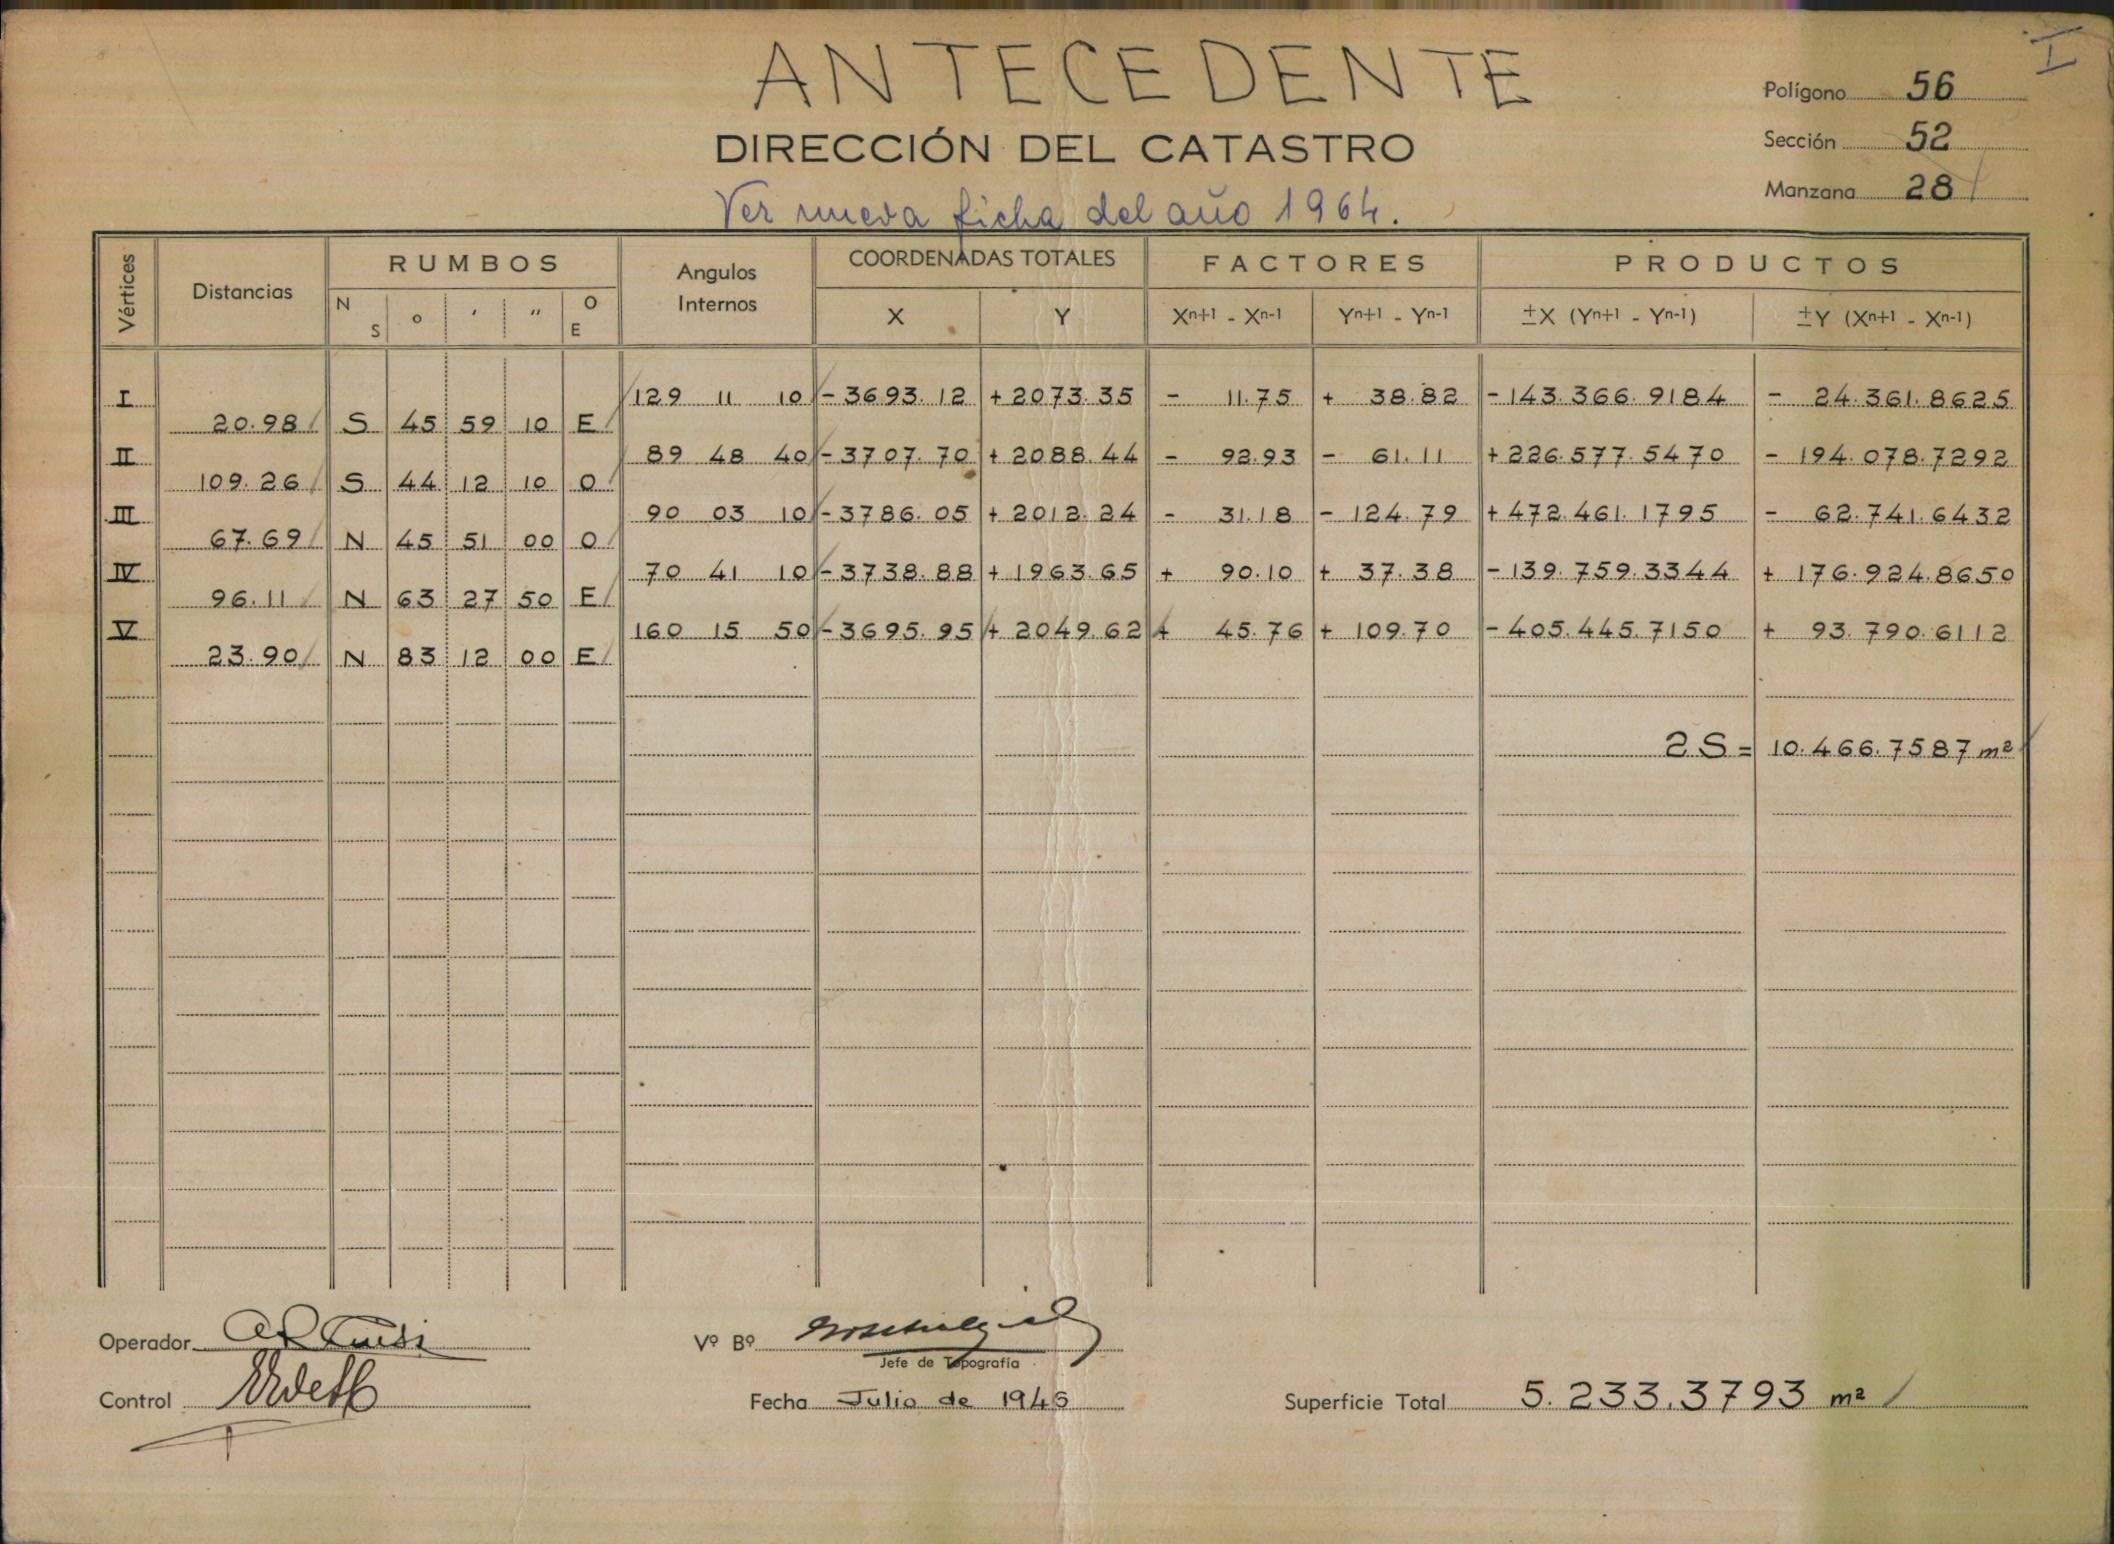 I
ANTECEDENTE
Polígono 56
DIRECCIÓN DEL CATASTRO
Sección 52
Manzana 28
Ver nueva ficha del año 1964.
Vértices Distancias RUMBOS Angulos Internos COORDENADAS TOTALES FACTORES PRODUCTOS
N S ° ′ ″ O E X Y Xn+1 - Xn-1 Yn+1 - Yn-1 ±X (Yn+1 - Yn-1) ±Y (Xn+1 - Xn-1)
I 129 11 10 -3693.12 +2073.35 - 11.75 + 38.82 -143.366.9184 - 24.361.8625
20.98 S 45 59 10 E
II 89 48 40 -3707.70 +2088.44 - 92.93 - 61.11 +226.577.5470 - 194.078.7292
109.26 S 44 12 10 O
III 90 03 10 -3786.05 +2012.24 - 31.18 - 124.79 +472.461.1795 - 62.741.6432
67.69 N 45 51 00 O
IV 70 41 10 -3738.88 +1963.65 + 90.10 + 37.38 -139.759.3344 + 176.924.8650
96.11 N 63 27 50 E
V 160 15 50 -3695.95 +2049.62 + 45.76 + 109.70 -405.445.7150 + 93.790.6112
23.90 N 83 12 00 E
2S = 10.466.7587 m²
Operador
Vº Bº
Jefe de Topografía
Control
Fecha Julio de 1945
Superficie Total 5.233.3793 m²